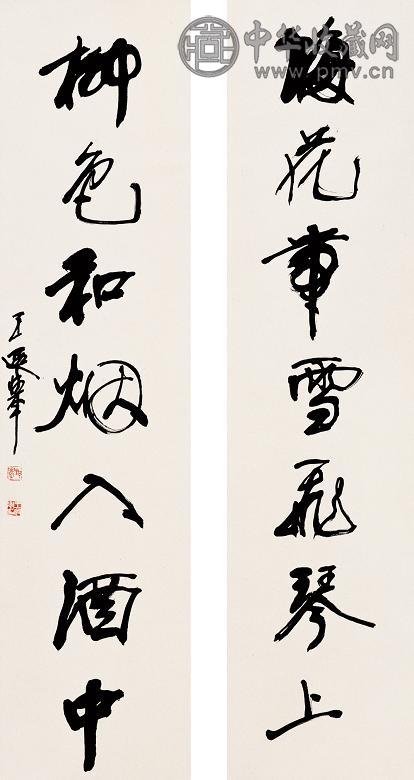 中华收藏网
www.pmv.cn
梅花带雪飛琴上
柳色和烟入酒中
王遐举